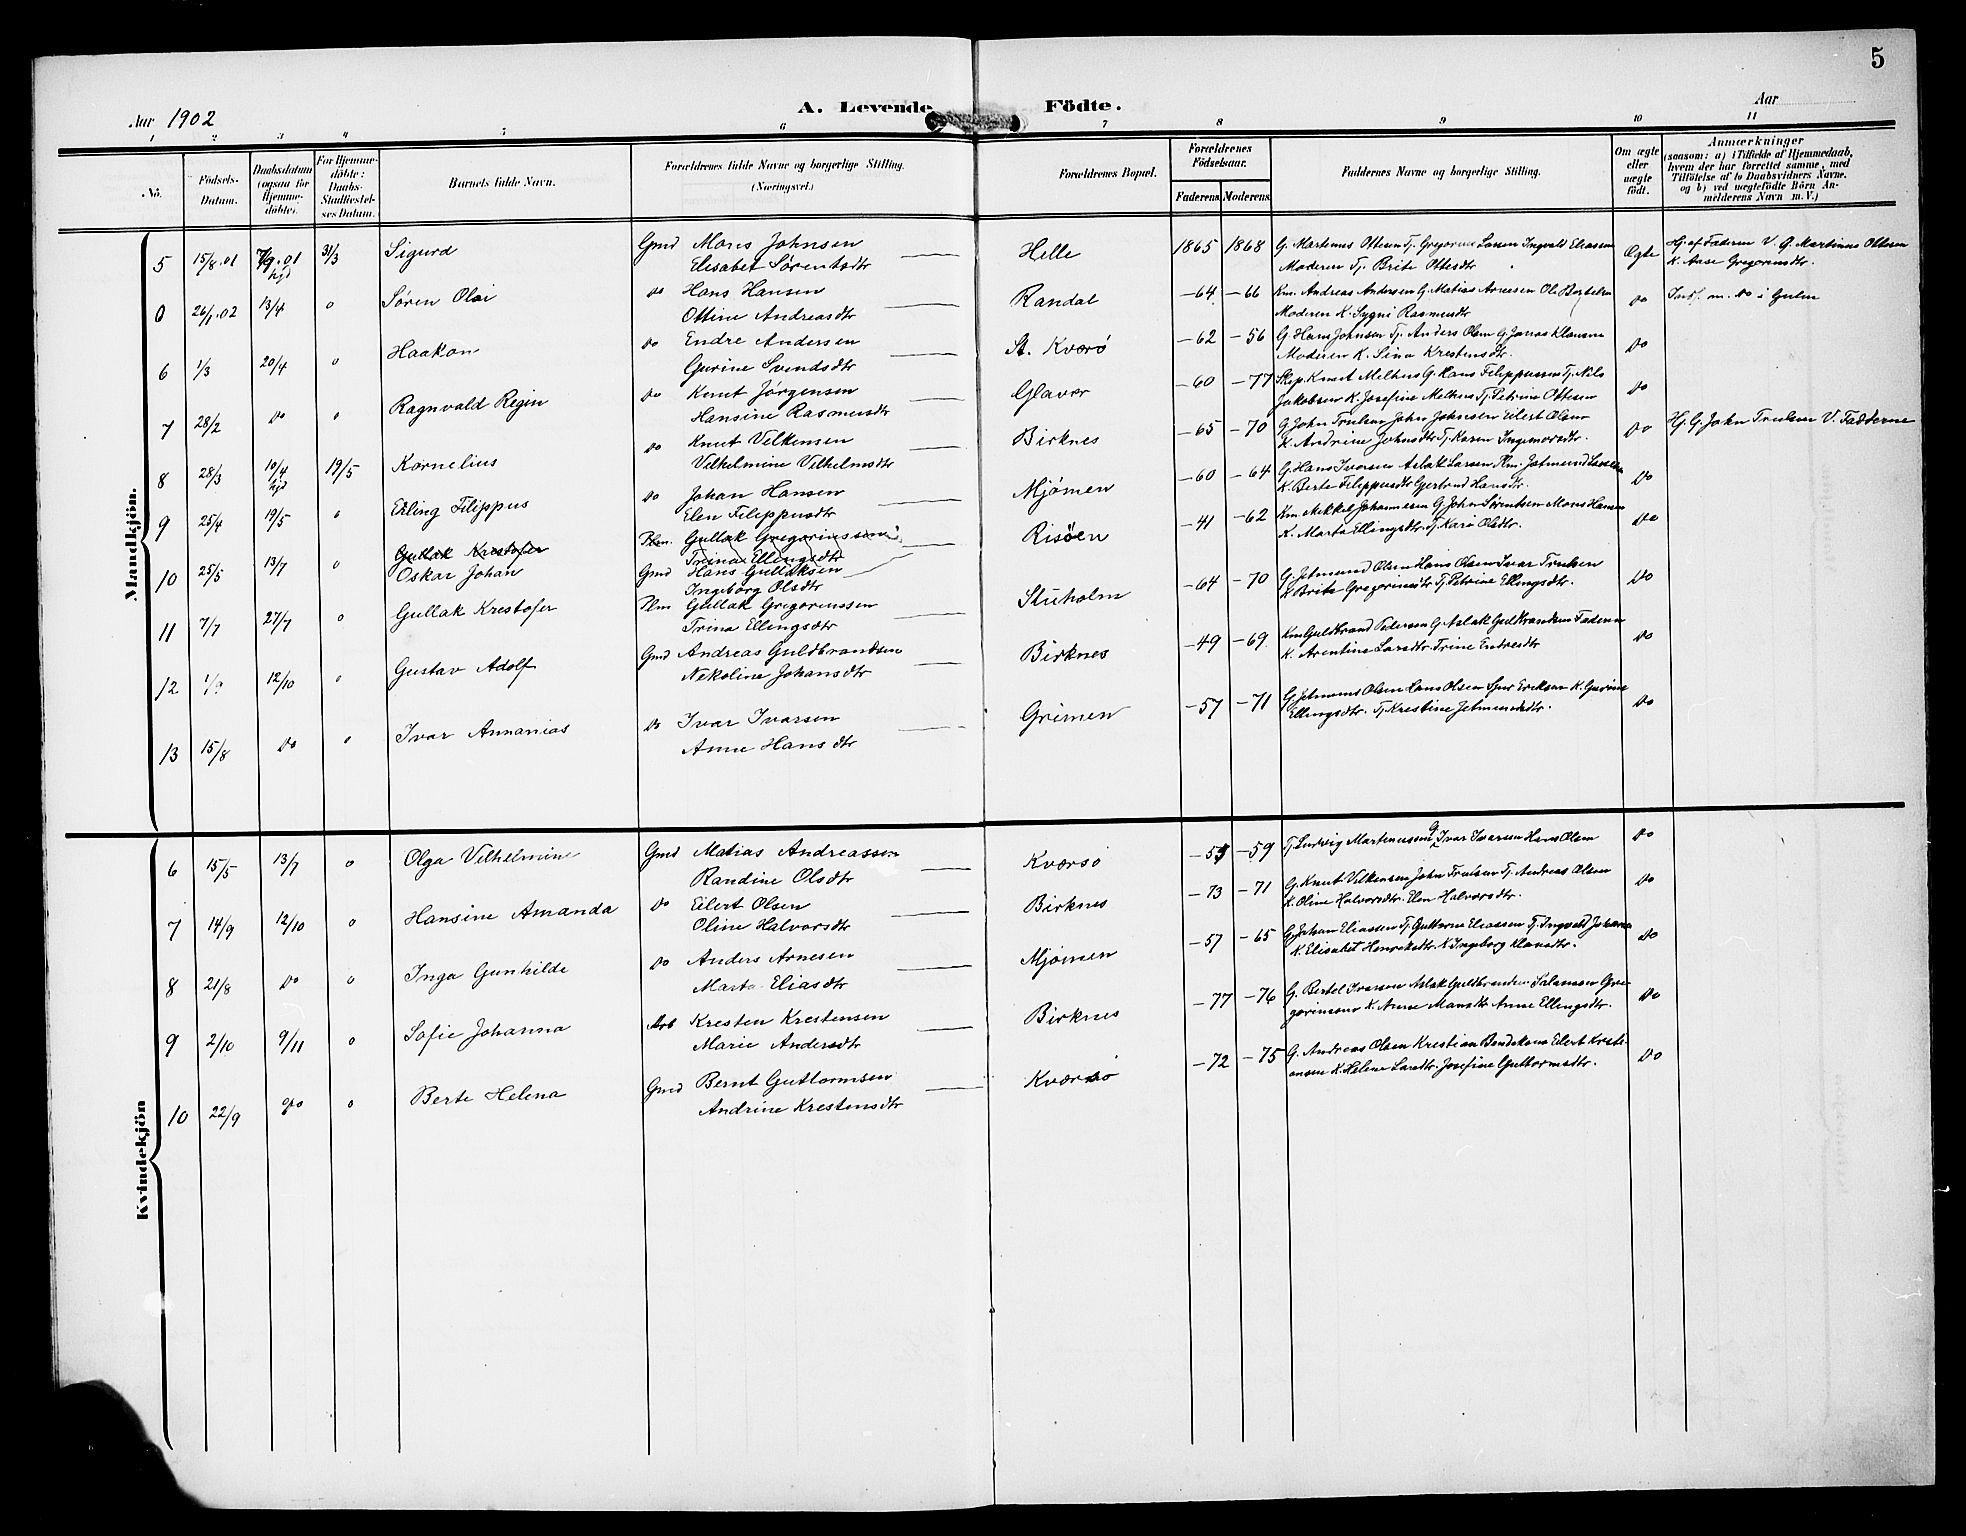 5
A. Levende Födte.
Aar 1902
Aar
1 2 3 4 5 6 7 8 9 10 11
No.
Födsels-Datum.
Daabsdatum (ogsaa for Hjemmedöbte).
For Hjemmedöbte: Daabs-Stadfæstelses Datum.
Barnets fulde Navn.
Forældrenes fulde Navne og borgerlige Stilling. (Næringsvei.)
Forældrenes Bopæl.
Forældrenes Födselsaar.
Faderens Moderens
Faddernes Navne og borgerlige Stilling.
Om ægte eller uægte födt.
Anmærkninger
(saasom: a) i Tilfælde af Hjemmedaab, hvem der har forrettet samme, med Tilföielse af to Daabsvidners Navne, og b) ved uægtefödte Börn Anmelderens Navn m. V.)
Mandkjön.
5 15/8.01 7/9.01 hjd 31/3 Sigurd Gmd Mons Johnsen Helle 1865 1868 G. Martenus Ottesen Tj. Gregorius Larsen Ingvald Eliassen Ægte Hj. af Faderen V. G. Martinus Ottesen
Elisabet Sørensdtr Moderen Tj. Brite Ottesdtr K. Aase Gregoriusdtr.
0 26/1.02 13/4 0 Søren Olai do Hans Hansen Randal -64 -66 Km. Andreas Andersen G. Matias Arnesen Ole Bertelsen do Indf. m. No i Gulen
Ottine Andreasdtr Moderen K. Sygni Rasmusdtr
6 1/3 20/4 0 Haakon do Endre Andersen St. Kværø -62 -56 G. Hans Johnsen Tj. Anders Olsen G. Jonas Klausen do
Gurine Svendsdtr Moderen K. Sina Krestensdtr.
7 28/2 do 0 Ragnvald Regin do Knut Jørgensen Glavær -60 -77 Skp. Knut Melhus G. Hans Filippussen Tj. Nils do
Hansine Rasmusdtr Jakobsen K. Josefine Melhus Tj. Petrine Ottesen
8 28/3 10/4 hjd 19/5 Kornelius do Knut Vilkensen Birknes -65 -70 G. John Trulsen John Johnsen Eilert Olsen do Hj. G. John Trulsen V. Fadderne
Vilhelmine Vilhelmsdtr K. Andrine Johnsdtr Tj. Karen Ingemarsdtr.
9 25/4 19/5 0 Erling Filippus do Johan Hansen Mjømen -60 -64 G. Hans Ivarsen Aslak Larsen Plm. Jetmund Larsen do
Elen Filippusdtr K. Berte Filippusdtr Gjertrud Hansdtr.
Gullak Krestofer Plm. Gullak Gregoriussen Risøen -41 -62 Km. Mikkel Johannesen G. John Sørensen Mons Hansen do
Trina Ellingsdtr K. Marta Ellingsdtr. Tj. Kari Olsdtr.
10 25/5 13/7 0 Oskar Johan Gmd Hans Gullaksen Stuholm -64 -70 G. Jetmund Olsen Hans Olsen Ivar Trulsen do
Ingeborg Olsdtr K. Brite Gregoriusdtr Tj. Petrine Ellingsdtr.
11 7/7 27/7 0 Gullak Krestofer Plm Gullak Gregoriussen
Trina Ellingsdtr
12 1/9 12/10 0 Gustav Adolf Gmd Andreas Guldbrandsen Birknes -49 -69 Km Guldbrand Pedersen G. Aslak Guldbrandsen Faderen do
Nekoline Johansdtr K. Arentine Larsdtr. Trine Endresdtr
13 15/8 do 0 Ivar Annanias do Ivar Ivarsen Grimen -57 -71 G. Jetmund Olsen Hans Olsen Sjur Eriksen K. Gurine do
Anne Hansdtr Ellingsdtr. Tj. Krestine Jetmundsdtr.
Kvindekjön
6 15/5 13/7 0 Olga Vilhelmine Gmd Matias Andreassen Kværsø -59 Tj. Ludvig Martenussen G. Ivar Ivarsen Hans Olsen do
Randine Olsdtr
7 14/9 12/10 0 Hansine Amanda do Eilert Olsen Birknes -73 -71 G. Knut Vilkensen John Trulsen Tj. Andreas Olsen do
Oline Halvorsdtr K. Oline Halvorsdtr. Elen Halvorsdtr.
8 21/8 do 0 Inga Gunhilde do Anders Arnesen Mjømen -57 -65 G. Johan Eliassen Tj. Guttorm Eliassen Tj. Ingvald Johansen do
Marta Eliasdtr K. Elisabet Henreksdtr. K Ingeborg Klausdtr.
9 2/10 9/11 0 Sofie Johanna Arb Kresten Krestensen Birknes -77 -76 G. Bertel Ivarsen Aslak Guldbrandsen Salamon Gre- do
Marie Andersdtr goriussen K. Anne Mansdtr Anne Ellingsdtr.
10 22/9 do 0 Berte Helena Gmd Bernt Guttormsen Kværsø -72 -75 G. Andreas Olsen Krestian Bendiksen Eilert Kresti- do
Andrine Krestensdtr ansen K. Helene Larsdtr. Josefine Guttormsdtr.